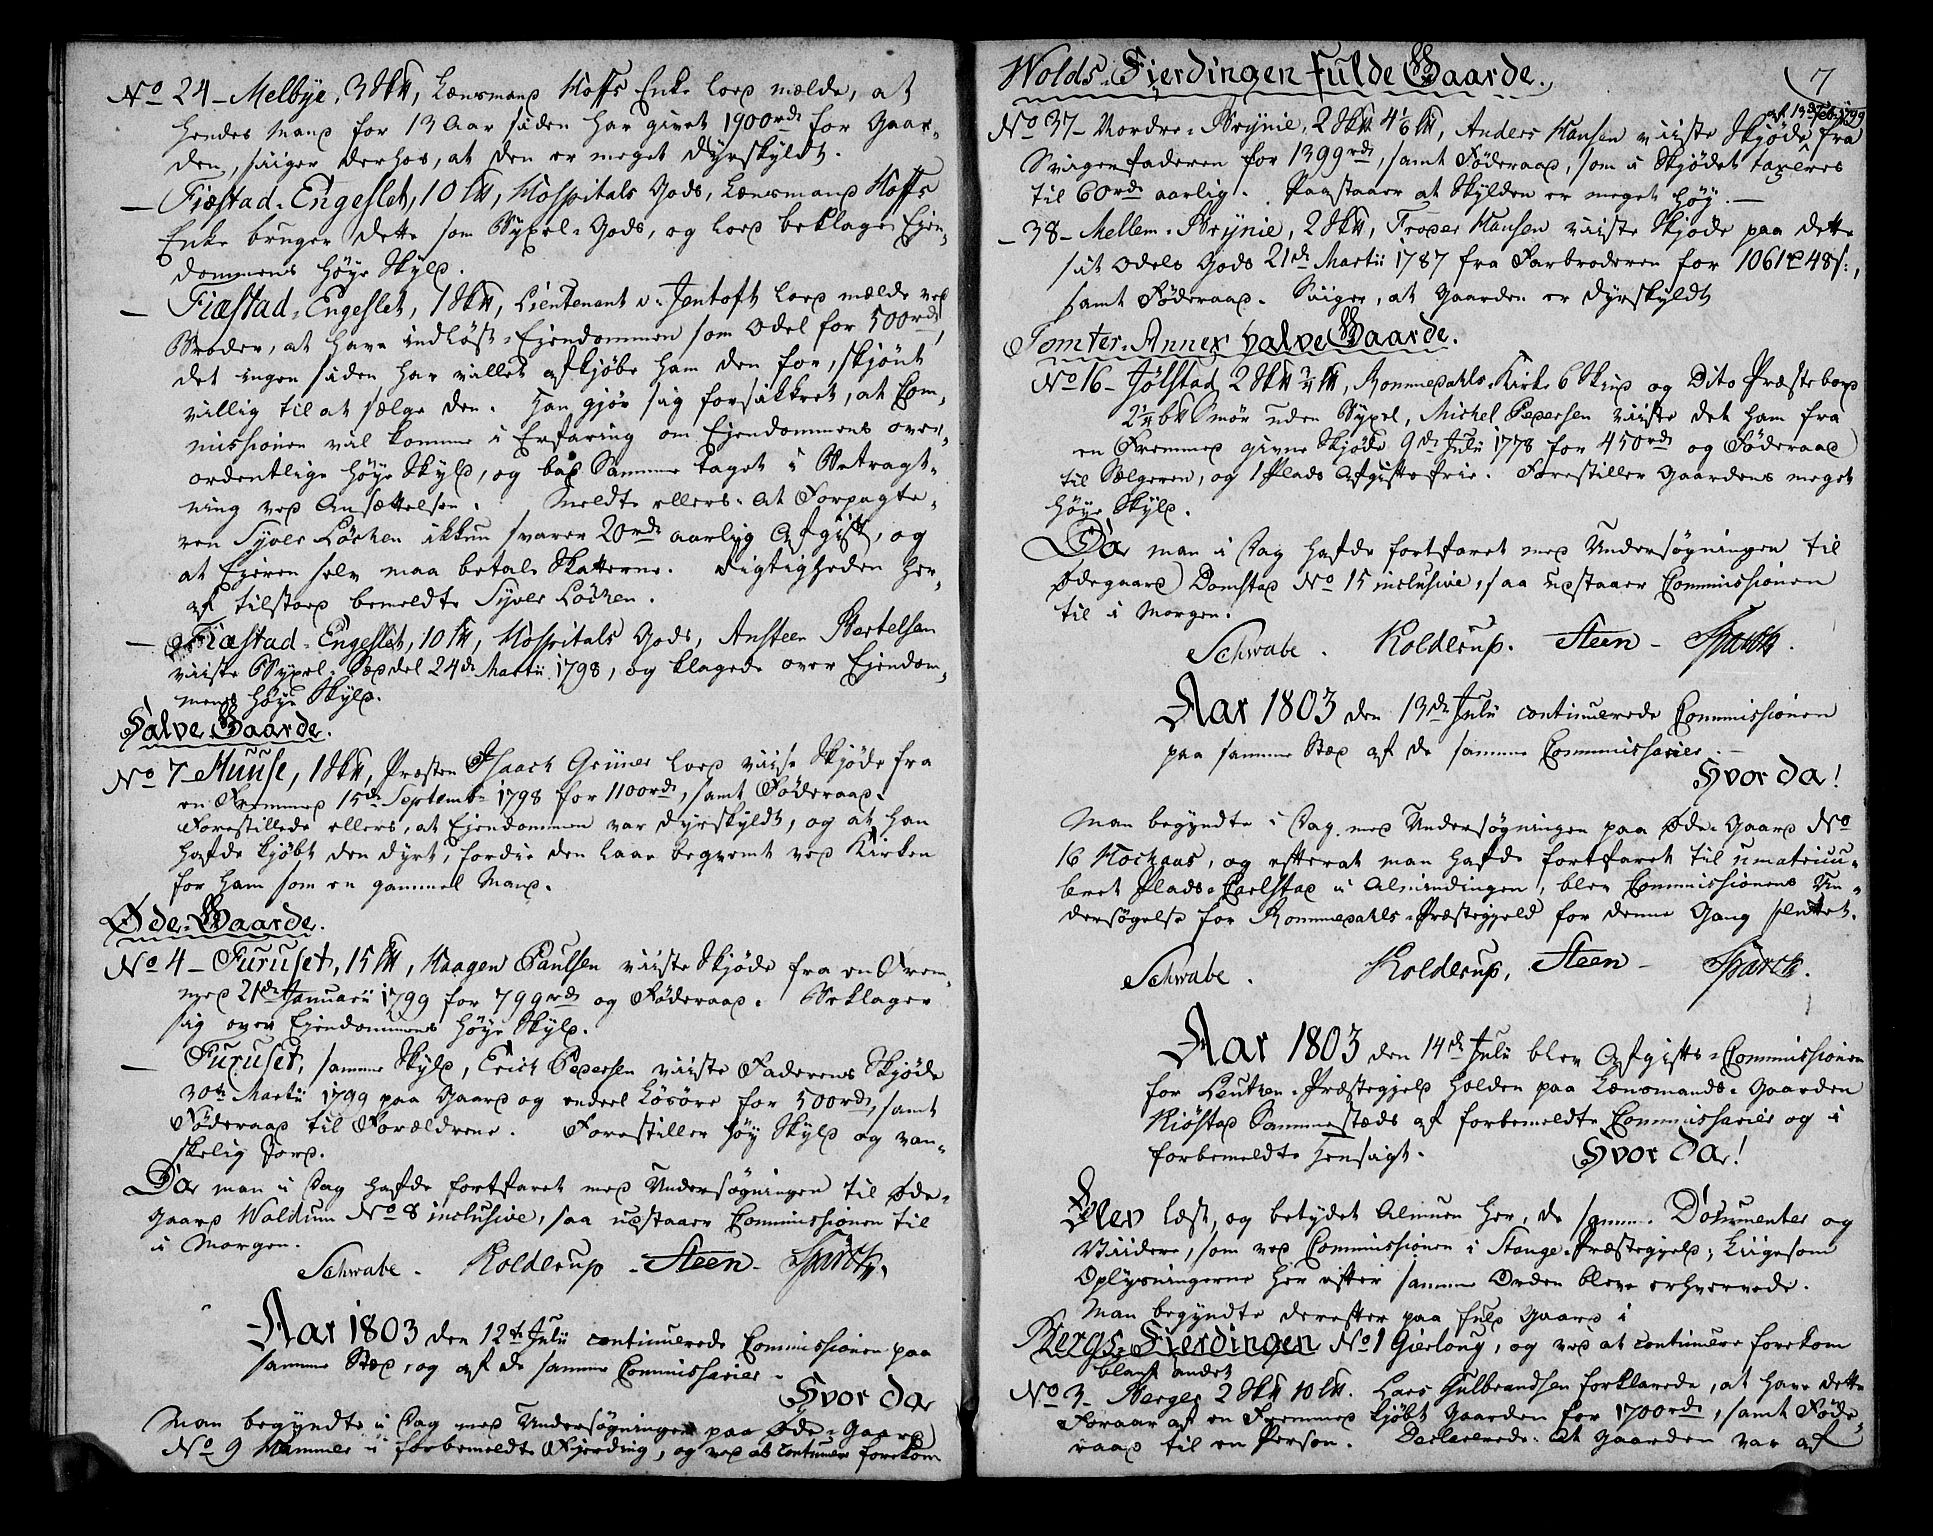 No 24 - Melbye, 3 Skll, Lænsmand Hoffs Enke lod mælde, at
hendes Mand for 13 Aar siden har givet 1900 rd for Gaar-
den, siiger derhos, at den er meget dyrskyldt.
— Fiæstad-Engeslet, 10 Lll, Hospitals Gods, Lænsmand Hoffs
Enke bruger dette som Bÿxel-Gods, og lod beklage Ejen-
dommens høye Skyld.
— Fiæstad-Engeslet, 1 Skll, Lieutenant v. Jentoft lod mælde ved
Broder, at have indløst Ejendommen som Odel for 500 rd,
det ingen siden har villet afkjøbe ham den for, skjønt
villig til at sælge den. Han gjør sig forsikkret, at Com-
missionen vil komme i Erfaring om Ejendommens over-
ordentlige høye Skyld, og bad Samme taget i Betragt-
ning ved Ansættelsen. Meldte ellers at Forpagte-
ren Syver Løchen ikkun svarer 20 rd aarlig Afgift, og
at Ejeren selv maa betale Skatterne. Rigtigheden her-
af tilstod bemeldte Syver Løchen.
— Fiæstad-Engeslet, 10 Lll, Hospitals Gods, Ansteen Bertelsen
viiste Bÿxel-Seddel 24de Martii 1798, og klagede over Ejendom-
mens høye Skyld.
Halve Gaarde.
No 7 - Huuse, 1 Skll, Præsten Isaach Grüner lod viise Skjøde fra
en Fremmed 15de Septembr 1798 for 1100 rd, samt Føderaad.
Forestillede ellers, at Ejendommen var dyrskyldt, og at han
hafde kjøbt den dyrt, fordie den laae beqvemt ved Kirken
for ham som en gammel Mand.
Øde-Gaarde.
No 4 - Furuset, 15 Lll, Haagen Paulsen viiste Skjøde fra en Frem-
med 21de Januarii 1799 for 799 rd og Føderaad. Beklager
sig over Ejendommens høye Skyld.
— Furuset, samme Skyld, Erich Pedersen viiste Faderens Skjøde
30te Martii 1799 paa Gaard og endeel Løsøre for 500 rd, samt
Føderaad til Forældrene. Forestiller høy Skyld og van-
skelig Jord.
Da man i Dag hafde fortfaret med Undersøgningen til Øde-
Gaard Woldum No 8 inclusive, saa udstaaer Commissionen til
i Morgen.
Schwabe. Kolderup - Steen - Sparck.
Aar 1803 den 12te Julii continuerede Commissionen paa
samme Sted, og af de samme Commissarier.
Hvor da
Man begyndte i Dag med Undersøgningen paa Øde-Gaard
No 9 Hammer i forbemeldte Fjerding, og ved at continuere forekom
7
Wolds-Fierdingen fulde Gaarde.
af 13de Febr 1799
No 37 - Nordre-Brÿnie, 2 Skll 4 1/6 Lll, Anders Hansen viiste Skjøde fra
Svigerfaderen for 1399 rd, samt Føderaad, som i Skjødet taxeres
til 60 rd aarlig. Paastaaer at Skylden er meget høy. —
- 38 - Mellem-Brÿnie, 2 Skll, Troxer Hansen viiste Skjøde paa dette
sit Odels Gods 21de Martii 1787 fra Farbroderen for 1061 rd 48 s:,
samt Føderaad. Siiger, at Gaarden er dyrskyldt
Tomter-Annex halve Gaarde.
No 16 - Jølstad 2 Skll Lll, Rommedahls Kirke 6 Skind og Dito Præstebord
Smør uden Bÿxel, Michel Pedersen viiste det ham fra
en Fremmed givne Skjøde 9de Julii 1778 for 450 rd og Føderaad
til Sælgeren, og 1 Plads Afgiftsfrie. Forestiller Gaardens meget
høye Skyld.
Da man i Dag hafde fortfaret med Undersøgningen til
Ødegaard Domstad No 15 inclusive, saa udstaaer Commissionen
til i Morgen.
Schwabe. Kolderup. Steen - Sparck.
Aar 1803 den 13de Julii continuerede Commissionen
paa samme Sted af de samme Commissarier. —
Hvor da!
Man begyndte i Dag med Undersøgningen paa Øde-Gaard No
16 Kochaas, og efterat man hafde fortfaret til umatricu-
leret Plads Carlstad i Almindingen, blev Commissionens Un-
dersøgelse for Rommedahls-Præstegjeld for denne Gang sluttet.
Schwabe. Kolderup, Steen - Sparck.
Aar 1803 den 14de Julii blev Afgifts-Commissionen
for Leuten-Præstegjeld holden paa Lænsmands-Gaarden
Kiøstad Sammestæds af forbemeldte Commissarier og i
forbemeldte Hensigt. Hvor da!
Blev læst, og betydet Almuen her, de samme Documenter og
Viidere, som ved Commissionen i Stange-Præstegjeld; Liigesom
Oplysningerne her efter samme Orden bleve erhvervede.
Man begyndte derefter paa fuld Gaard i
Bergs-Fierdingen No 1 Gierlong, og ved at continuere forekom
blant andet
No 3 - Berger 2 Skll 10 Lll. Lars Gulbrandsen forklarede, at have dette
Foraar af en Fremmed kjøbt Gaarden for 1700 rd, samt Føde-
raad til en Person. Declarerede at Gaarden var af